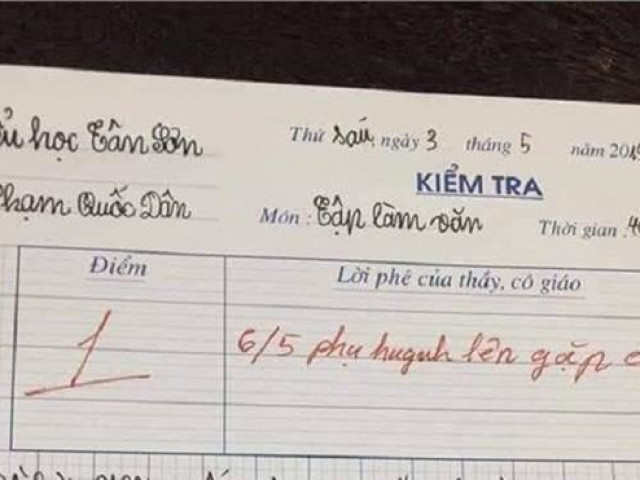 học Tân Sơn
Thứ sáu, ngày 3 tháng 5 năm 201
KIỂM TRA
Phạm Quốc Dân
Môn : Tập làm văn
Thời gian : 4
Điểm
Lời phê của thầy, cô giáo
1
6/5 phụ huynh lên gặp